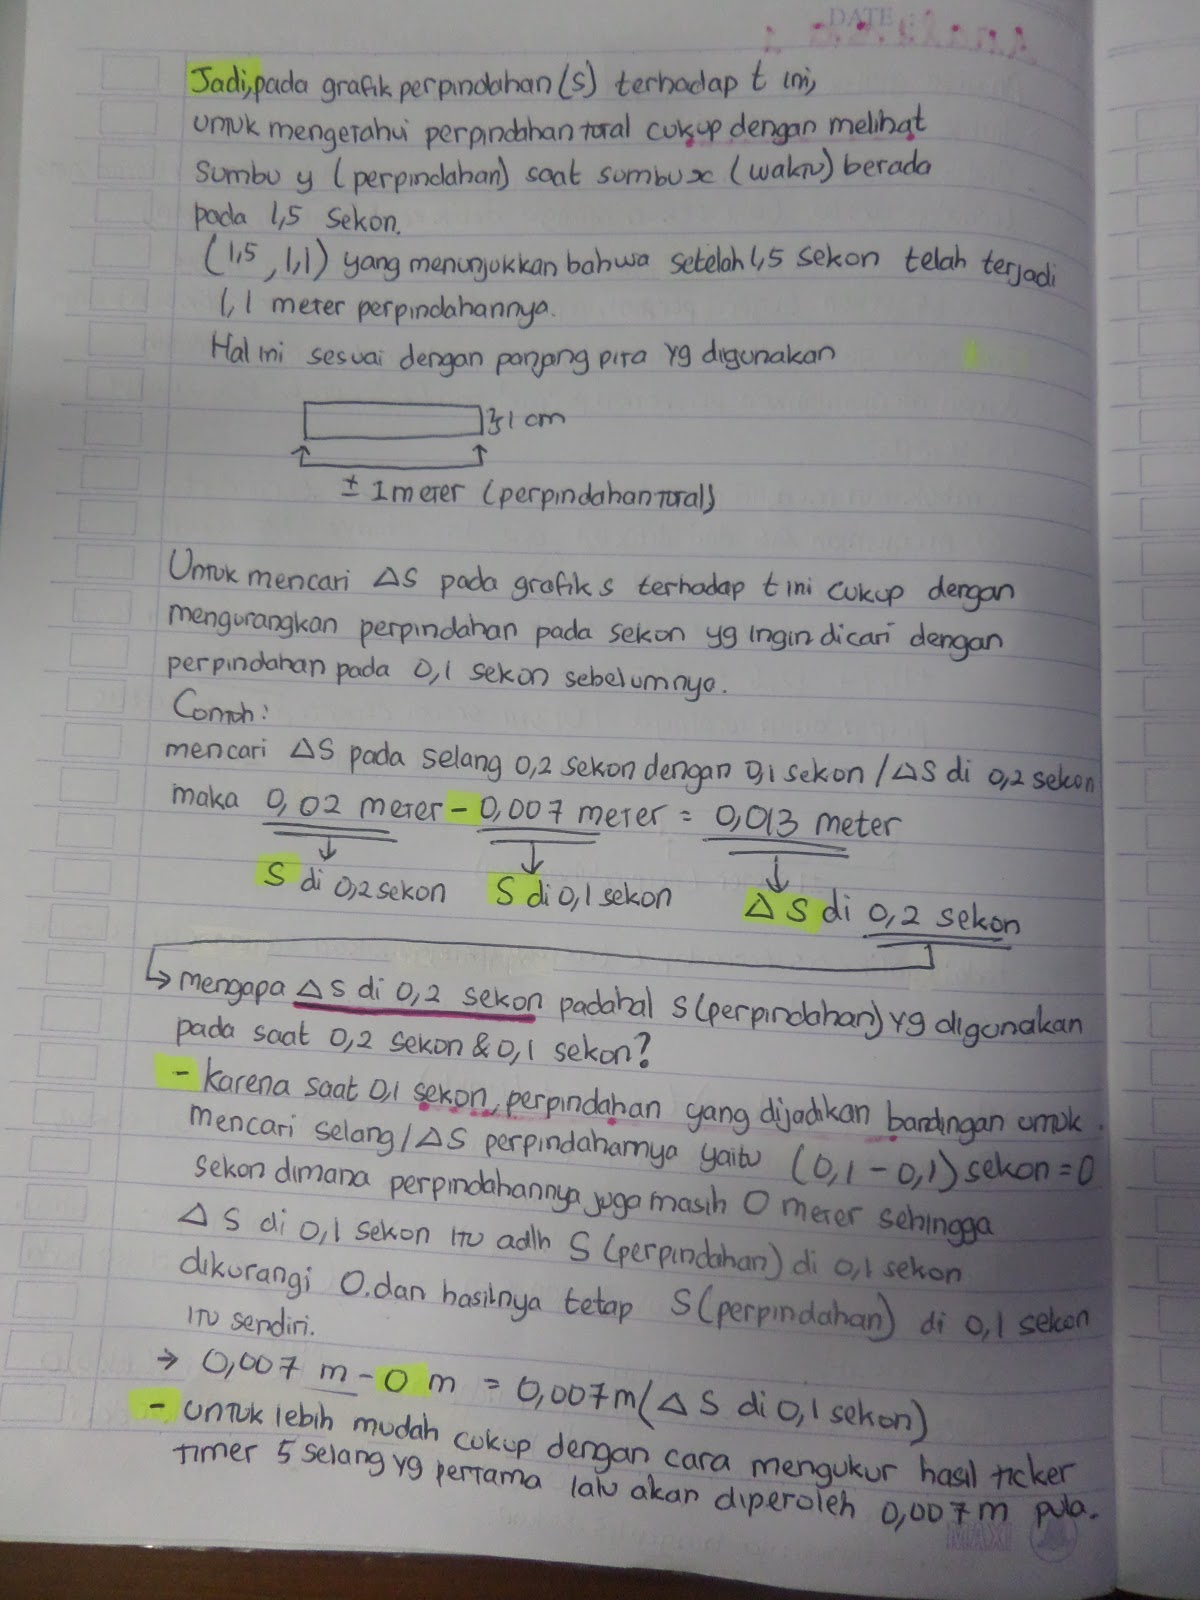 DATE :
Jadi, pada grafik perpindahan (s) terhadap t ini,
untuk mengetahui perpindahan total cukup dengan melihat
sumbu y (perpindahan) saat sumbu x (waktu) berada
pada 1,5 sekon.
(1,5 , 1,1) yang menunjukkan bahwa setelah 1,5 sekon telah terjadi
1,1 meter perpindahannya.
Hal ini sesuai dengan panjang pita yg digunakan
1 cm
± 1 meter (perpindahan total)
Untuk mencari ΔS pada grafik s terhadap t ini cukup dengan
mengurangkan perpindahan pada sekon yg ingin dicari dengan
perpindahan pada 0,1 sekon sebelumnya.
Contoh:
mencari ΔS pada selang 0,2 sekon dengan 0,1 sekon / ΔS di 0,2 sekon
maka 0,02 meter - 0,007 meter = 0,013 meter
S di 0,2 sekon S di 0,1 sekon ΔS di 0,2 sekon
mengapa ΔS di 0,2 sekon padahal S (perpindahan) yg digunakan
pada saat 0,2 sekon & 0,1 sekon?
- karena saat 0,1 sekon, perpindahan yang dijadikan bandingan untuk
mencari selang / ΔS perpindahannya yaitu (0,1 - 0,1) sekon = 0
sekon dimana perpindahannya juga masih 0 meter sehingga
ΔS di 0,1 sekon itu adlh S (perpindahan) di 0,1 sekon
dikurangi 0. dan hasilnya tetap S (perpindahan) di 0,1 sekon
itu sendiri.
→ 0,007 m - 0 m = 0,007 m (ΔS di 0,1 sekon)
- untuk lebih mudah cukup dengan cara mengukur hasil ticker
timer 5 selang yg pertama lalu akan diperoleh 0,007 m pula.
MAXI